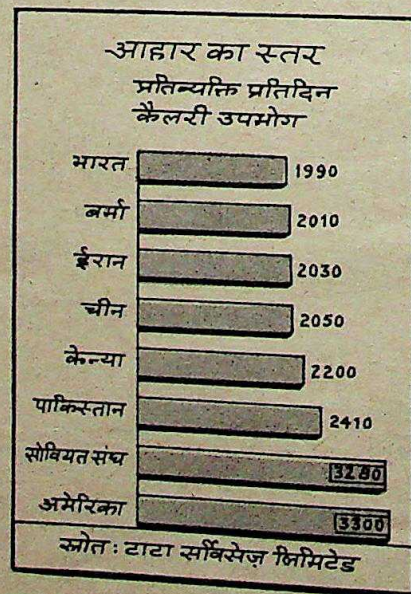 आहार का स्तर
प्रतिव्यक्ति प्रतिदिन
कैलरी उपभोग
भारत 1990
बर्मा 2010
ईरान 2030
चीन 2050
केन्या 2200
पाकिस्तान 2410
सोवियत संघ 3280
अमेरिका 3300
स्रोत : टाटा सर्विसेज़ लिमिटेड